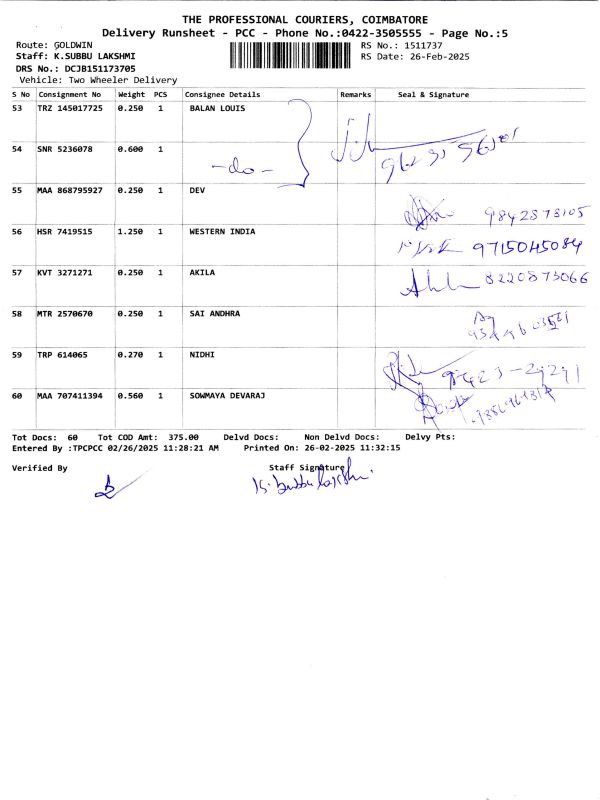 THE PROFESSIONAL COURIERS, COIMBATORE
Delivery Runsheet - PCC - Phone No.:0422-3505555 - Page No.:5
Route: GOLDWIN RS No.: 1511737
Staff: K.SUBBU LAKSHMI RS Date: 26-Feb-2025
DRS No.: DCJB151173705
Vehicle: Two Wheeler Delivery
S No Consignment No Weight PCS Consignee Details Remarks Seal & Signature
53 TRZ 145017725 0.250 1 BALAN LOUIS
54 SNR 5236078 0.600 1 -do-
55 MAA 868795927 0.250 1 DEV 9842873105
56 HSR 7419515 1.250 1 WESTERN INDIA 9715045084
57 KVT 3271271 0.250 1 AKILA 8220873066
58 MTR 2570670 0.250 1 SAI ANDHRA
59 TRP 614065 0.270 1 NIDHI
60 MAA 707411394 0.560 1 SOWMAYA DEVARAJ
Tot Docs: 60 Tot COD Amt: 375.00 Delvd Docs: Non Delvd Docs: Delvy Pts:
Entered By :TPCPCC 02/26/2025 11:28:21 AM Printed On: 26-02-2025 11:32:15
Verified By Staff Signature